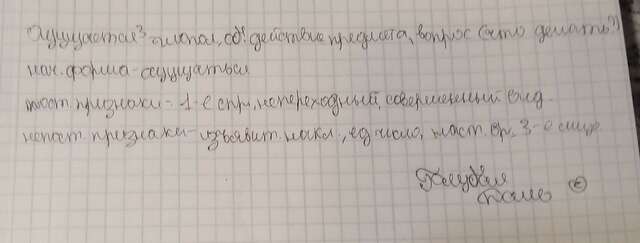 Ощущается³ - глагол, об. действие предмета, вопрос (что делать?)
нач. форма - ощущаться
пост. признаки - 1-е спр., непереходный, совершенный вид.
непост. признаки - изъявит. накл., ед число, наст. вр., 3-е лицо